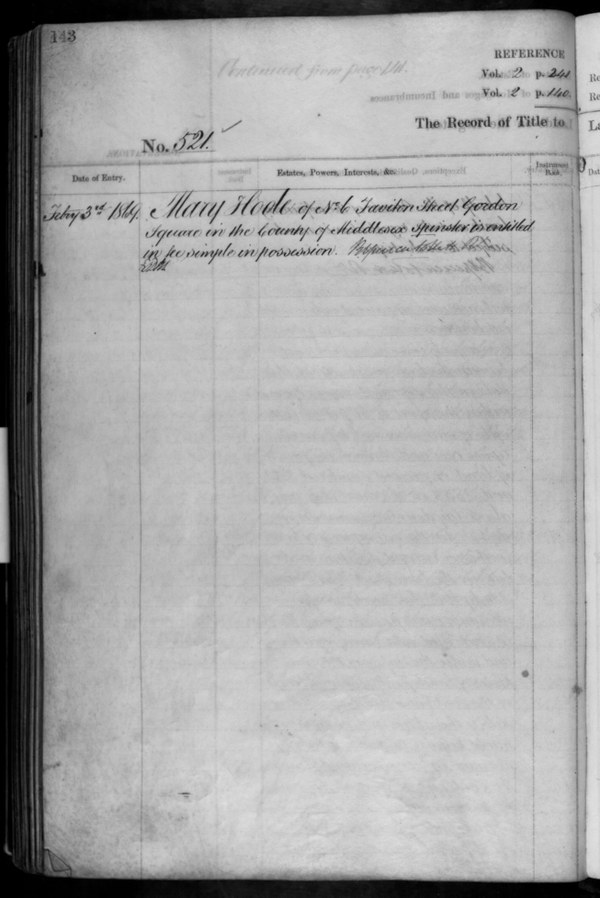 143
REFERENCE
Vol. 2 p. 241
Vol. 2 p. 140.
The Record of Title to
No. 521.
Date of Entry.
Estates, Powers, Interests, &c.
Instrument
Feby 3rd 1869. Mary Hoole of No 6 Taviton Street Gordon
Square in the County of Middlesex Spinster is entitled
in fee simple in possession.